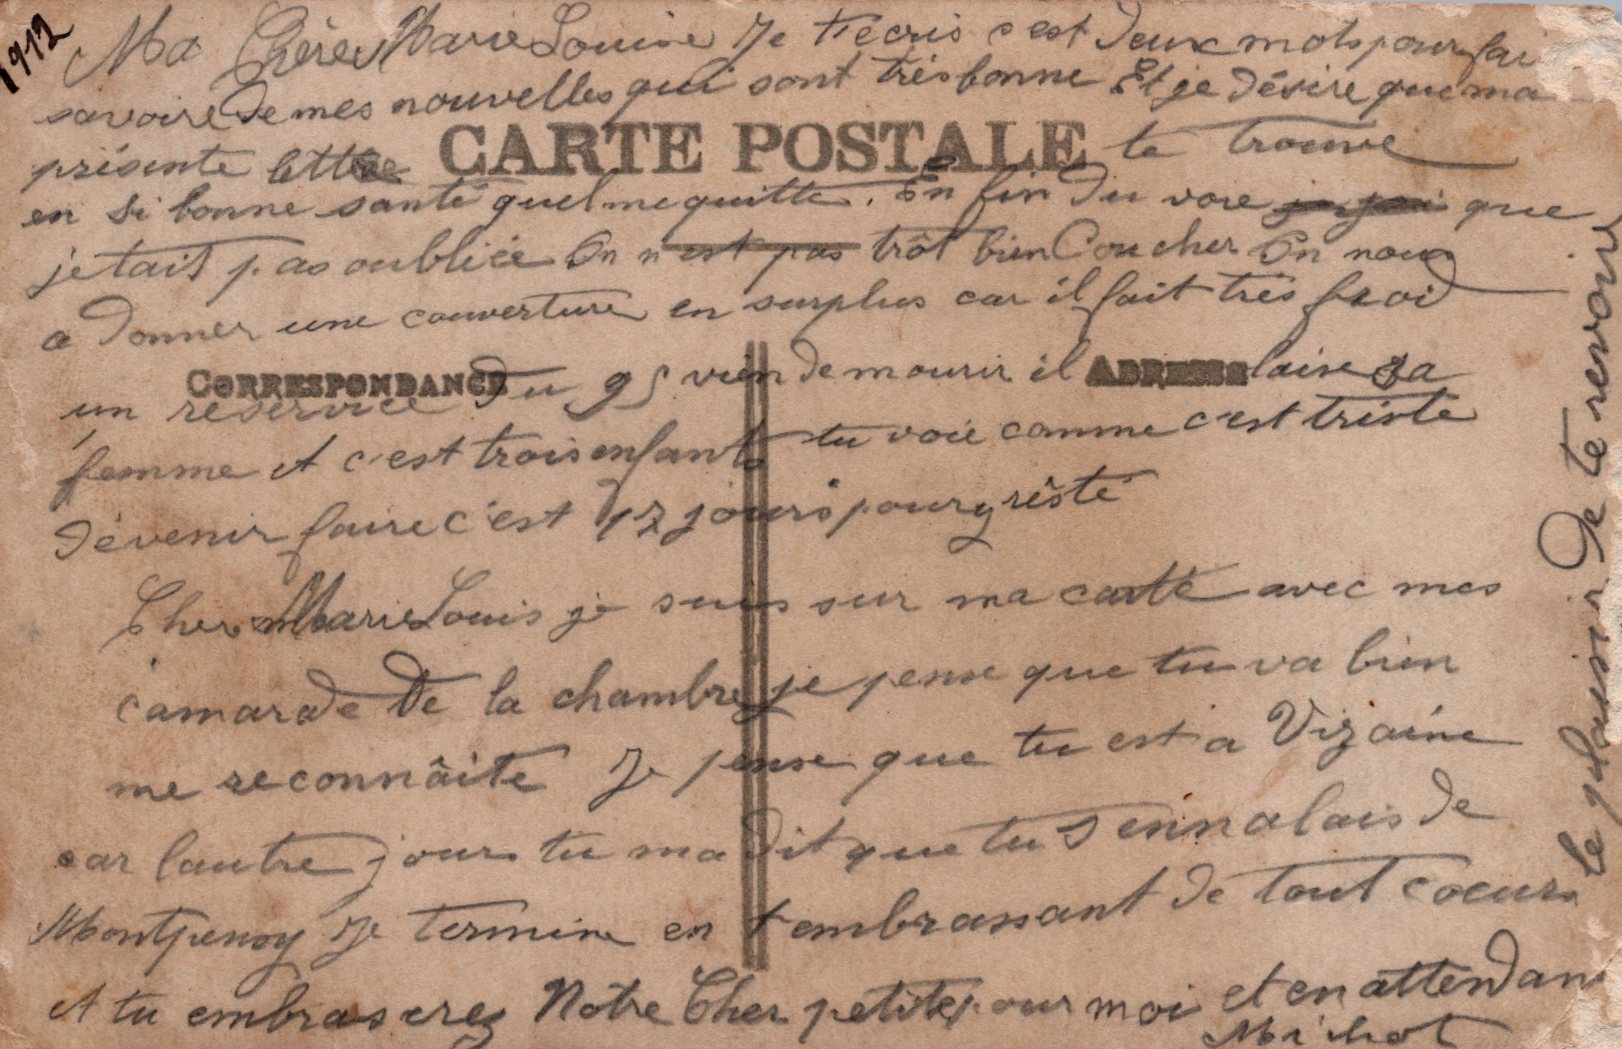 1912
Ma Chère Marie Louise Je t'écris c'est deux mots pour fai
savoire de mes nouvelles qui sont très bonne Et je désire que ma
présente lettre CARTE POSTALE te trouve
en si bonne santé quel me quitte. En fin du voie que
jetait pas oubliée On n'est pas trôt bien Coucher On nous
a donner une couverture en surplus car il fait très froid
CORRESPONDANCE ADRESSE
un réservice du 95 vien de mourir il laise sa
femme et c'est trois enfants tu voie comme c'est triste
dévenir faire c'est 17 jours pour y résté
Cher Marie Louis je suis sur ma carte avec mes
camarade de la chambre je pense que tu va bien
me reconnâite Je pense que tu est a Vizaine
car lautre jours tu ma dit que tu sennalais de
Montpenoy Je termine en t'embrassant de tout coeur
et tu embrasserez Nôtre Cher petite pour moi et en attendan
le plaisir de te revoir
Michot